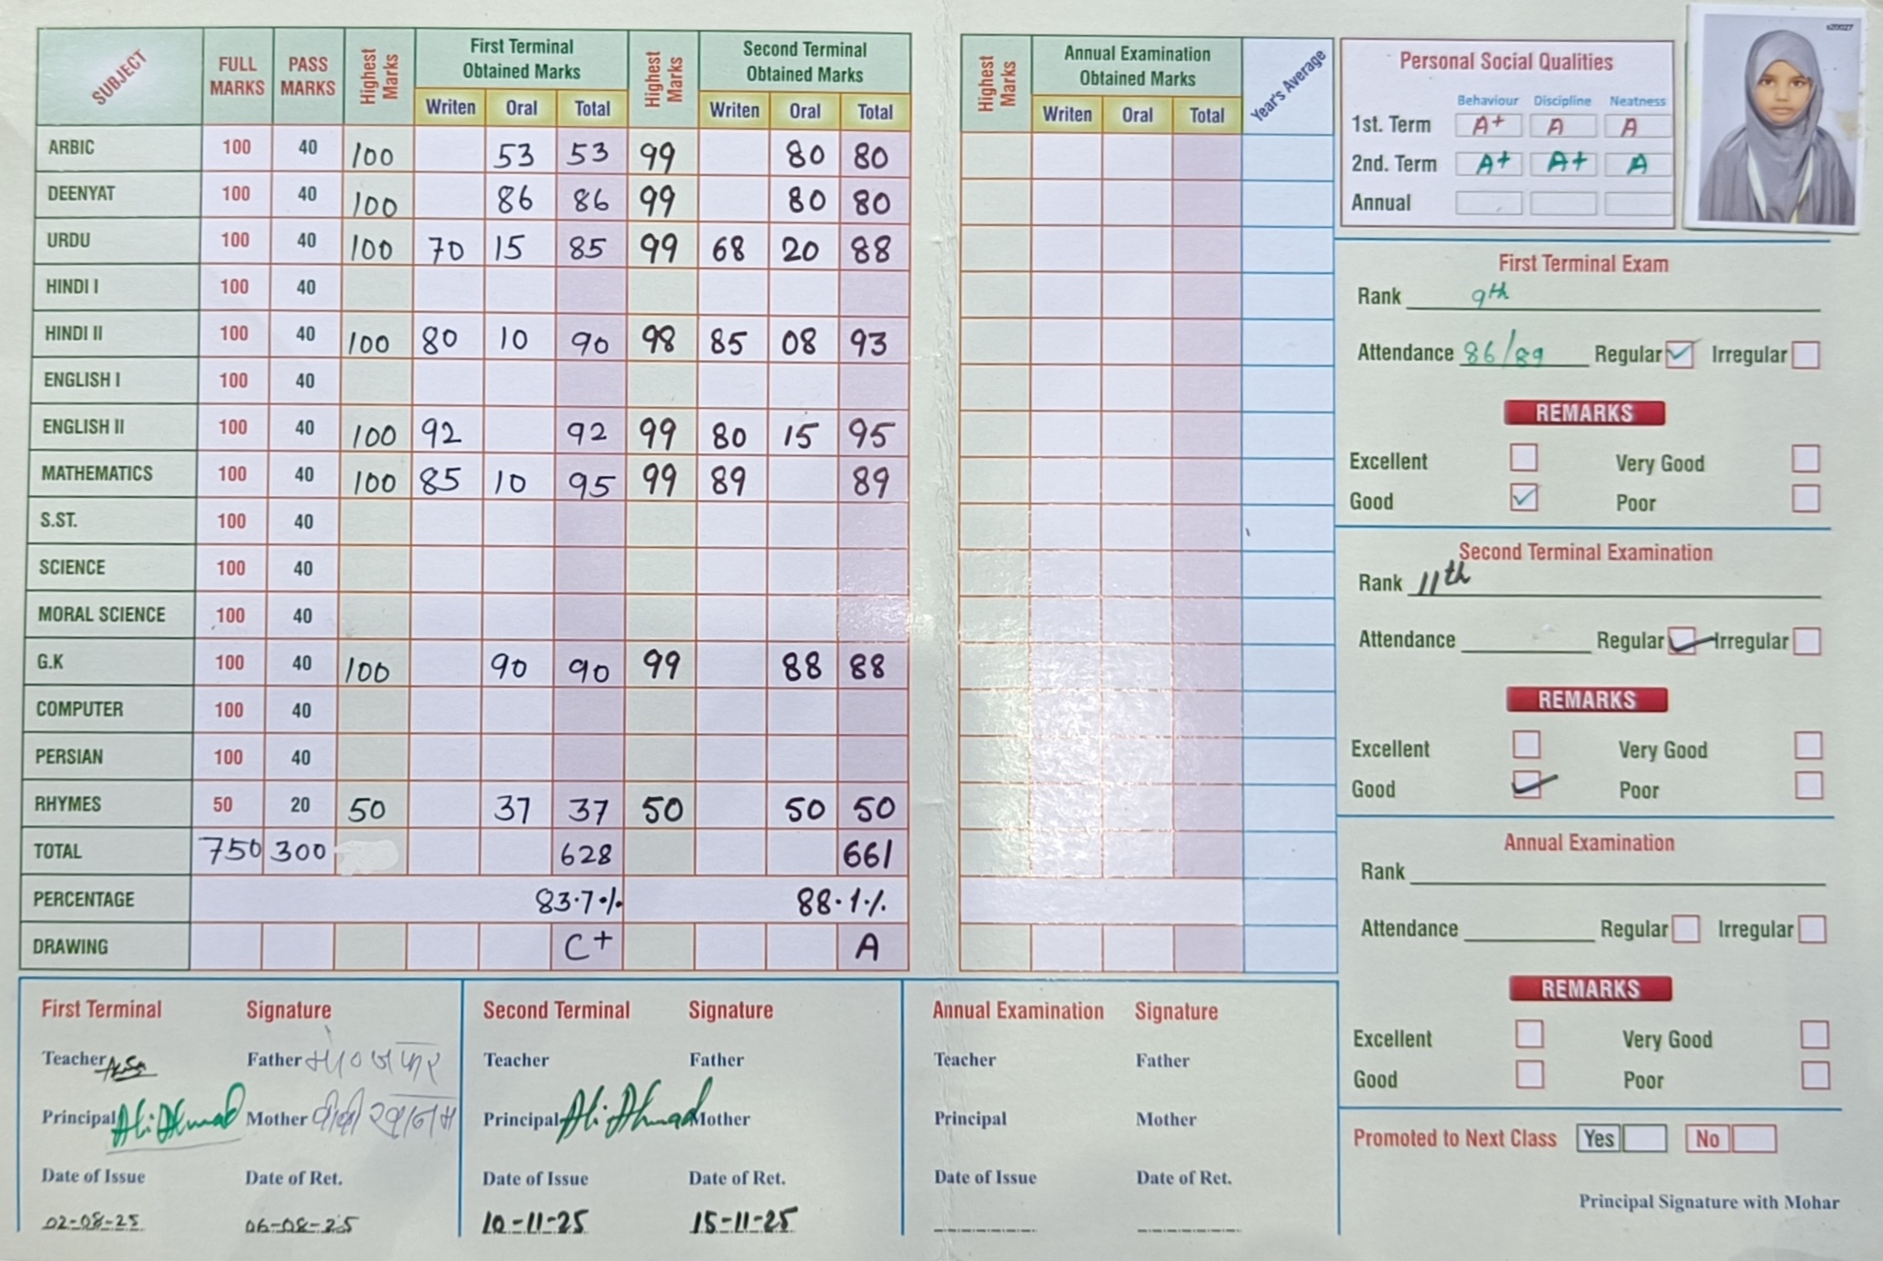 SUBJECT FULL MARKS PASS MARKS Highest Marks First Terminal Obtained Marks Highest Marks Second Terminal Obtained Marks
Writen Oral Total Writen Oral Total
ARBIC 100 40 100 53 53 99 80 80
DEENYAT 100 40 100 86 86 99 80 80
URDU 100 40 100 70 15 85 99 68 20 88
HINDI I 100 40
HINDI II 100 40 100 80 10 90 98 85 08 93
ENGLISH I 100 40
ENGLISH II 100 40 100 92 92 99 80 15 95
MATHEMATICS 100 40 100 85 10 95 99 89 89
S.ST. 100 40
SCIENCE 100 40
MORAL SCIENCE 100 40
G.K 100 40 100 90 90 99 88 88
COMPUTER 100 40
PERSIAN 100 40
RHYMES 50 20 50 37 37 50 50 50
TOTAL 750 300 628 661
PERCENTAGE 83.7% 88.1%
DRAWING C+ A
Highest Marks Annual Examination Obtained Marks Year's Average
Writen Oral Total
Personal Social Qualities
Behaviour Discipline Neatness
1st. Term A+ A A
2nd. Term A+ A+ A
Annual
First Terminal Exam
Rank 9th
Attendance 86/89 Regular Irregular
REMARKS
Excellent Very Good
Good Poor
Second Terminal Examination
Rank 11th
Attendance Regular Irregular
REMARKS
Excellent Very Good
Good Poor
Annual Examination
Rank
Attendance Regular Irregular
REMARKS
Excellent Very Good
Good Poor
Promoted to Next Class Yes No
Principal Signature with Mohar
First Terminal Signature
Teacher Father
Principal Ali Ahmad Mother
Date of Issue Date of Ret.
02-08-25 06-08-25
Second Terminal Signature
Teacher Father
Principal Ali Ahmad Mother
Date of Issue Date of Ret.
10-11-25 15-11-25
Annual Examination Signature
Teacher Father
Principal Mother
Date of Issue Date of Ret.